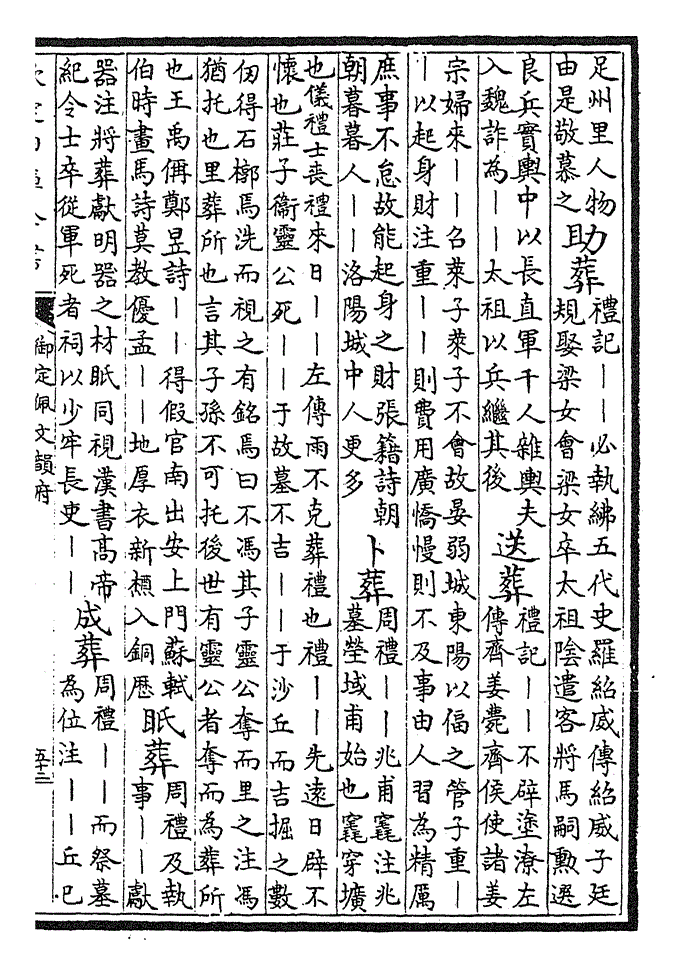 足州里人物助葬禮記｜｜必執紼五代史羅紹威傳紹威子廷
由是敬慕之規娶梁女會梁女卒太祖陰遣客將馬嗣勲選
良兵實輿中以長直軍千人雜輿夫送葬禮記｜｜不辟塗潦左
入魏詐為｜｜太祖以兵繼其後傳齊姜薨齊侯使諸姜
宗婦來｜｜召萊子萊子不會故晏弱城東陽以偪之管子重｜
｜以起身財注重｜｜則費用廣憍慢則不及事由人習為精厲
庶事不怠故能起身之財張籍詩朝
朝暮暮人｜｜洛陽城中人更多
卜葬周禮｜｜兆甫竁注兆
墓塋域甫始也竁穿壙
也儀禮士喪禮來日｜｜左傳雨不克葬禮也禮｜｜先遠日辟不
懷也莊子衞靈公死｜｜于故墓不吉｜｜于沙丘而吉掘之數
仞得石槨焉洗而視之有銘焉曰不馮其子靈公奪而里之注馮
猶托也里葬所也言其子孫不可托後世有靈公者奪而為葬所
也王禹偁鄭昱詩｜｜得假官南出安上門蘇軾
伯時畫馬詩莫教優孟｜｜地厚衣新槚入銅歷
眂葬周禮及執
事｜｜獻
器注將葬獻明器之材眂同視漢書高帝
紀令士卒從軍死者祠以少牢長吏｜｜
成葬周禮｜｜而祭墓
為位注｜｜丘已
御定佩文韻府